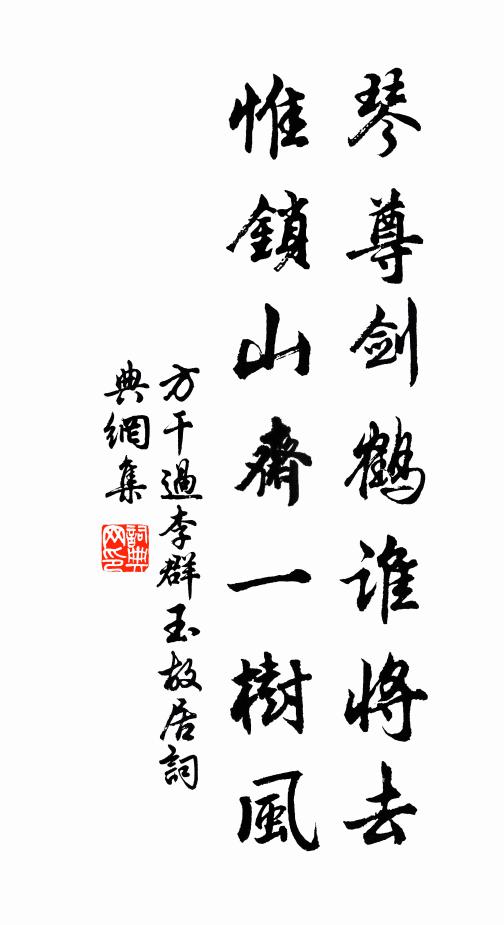 琴尊劍鶴誰將去
惟鎖山齋一樹風
方干過李群玉故居詞
典網集
詞典
网印